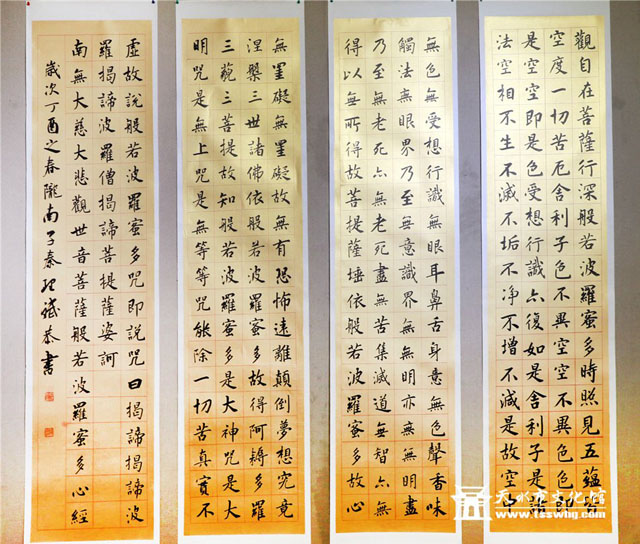 觀自在菩薩行深般若波羅蜜多時照見五蘊皆
空度一切苦厄舍利子色不異空空不異色色即
是空空即是色受想行識亦復如是舍利子是諸
法空相不生不滅不垢不净不增不減是故空中
無色無受想行識無眼耳鼻舌身意無色聲香味
觸法無眼界乃至無意識界無無明亦無無明盡
乃至無老死亦無老死盡無苦集滅道無智亦無
得以無所得故菩提薩埵依般若波羅蜜多故心
無罣礙無罣礙故無有恐怖遠離顛倒夢想究竟
涅槃三世諸佛依般若波羅蜜多故得阿耨多羅
三藐三菩提故知般若波羅蜜多是大神咒是大
明咒是無上咒是無等等咒能除一切苦真實不
虛故說般若波羅蜜多咒即說咒曰揭諦揭諦波
羅揭諦波羅僧揭諦菩提薩婆訶
南無大慈大悲觀世音菩薩般若波羅蜜多心經
歲次丁酉之春隴南子秦恭書
天水市文化馆
www.tsswhg.com